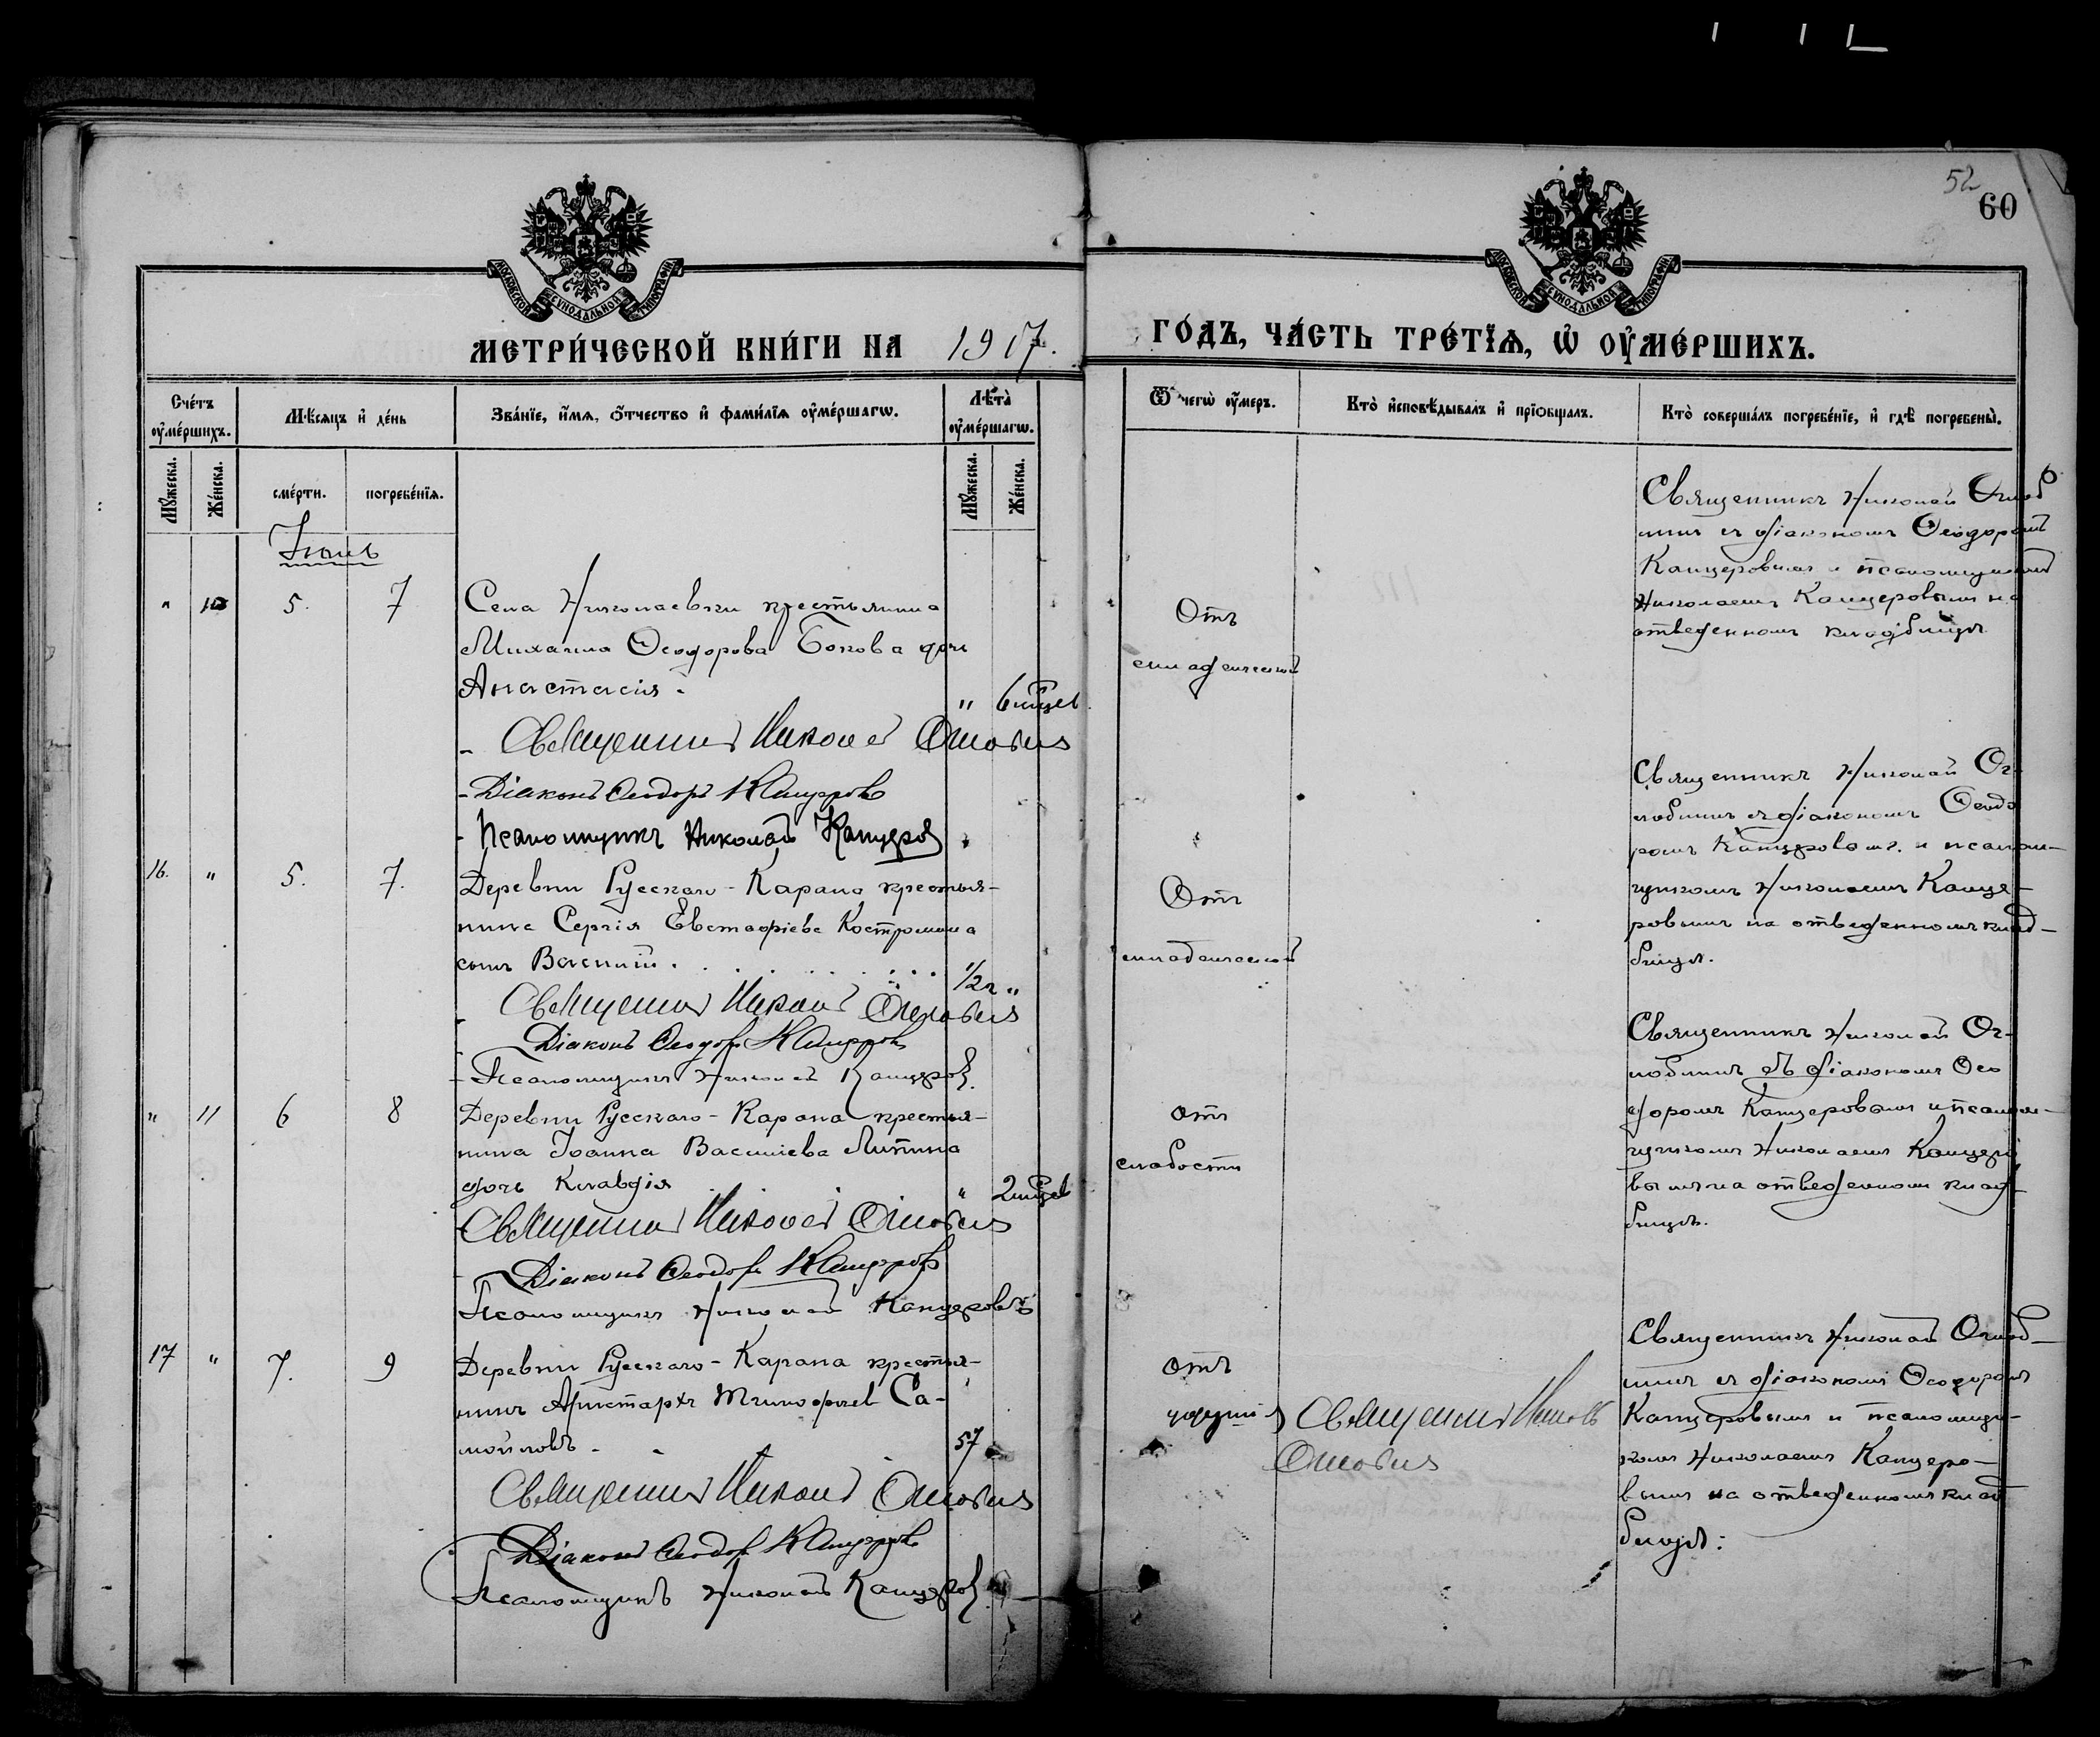 52
60
МОСКОВСКОЙ СѴНОДАЛЬНОЙ ТИПОГРАФІИ
МОСКОВСКОЙ СѴНОДАЛЬНОЙ ТИПОГРАФІИ
МЕТРИ́ЧЕСКОЙ КНИ́ГИ НА 1917.
ГО́ДЪ, ЧА́СТЬ ТРЕ́ТЇѦ, Ѡ҆ ОУ҆МЕ́РШИХЪ.
Сче́тъ оу҆ме́ршихъ.
Мѣ́сяцъ и҆ де́нь
Зва́нїе, и҆́мѧ, ѻ҆́тчество и҆ фами́лїѧ оу҆ме́ршагѡ.
Лѣ́та оу҆ме́ршагѡ.
Ѿ чегѡ̀ оу҆́меръ.
Кто̀ и҆сповѣ́дывалъ и҆ прїобща́лъ.
Кто̀ соверша́лъ погребе́нїе, и҆ гдѣ̀ погребены̀.
Мꙋ́жеска.
Же́нска.
сме́рти.
погребе́нїѧ.
Мꙋ́жеска.
Же́нска.
Іюнь
" 10 5. 7
Села Николаевки крестьянина
Михаила Ѳеодорова Бокова дочь
Анастасія.
" 6 мѣсцев
- Священникъ Николай Оглоблинъ
- Діаконъ Ѳеодоръ Канцеровъ
- Псаломщикъ Николай Канцеров
Отъ
младенческой
Священникъ Николай Оглоб
линъ съ діакономъ Ѳеодоромъ
Канцеровымъ и псаломщикомъ
Николаемъ Канцеровымъ на
отведенномъ кладбищѣ
16. " 5. 7.
Деревни Русскаго-Карана крестья-
нина Сергія Евстафіева Костромина
сынъ Василій.
1/2 г "
- Священникъ Николай Оглоблинъ
- Діаконъ Ѳеодоръ Канцеровъ
- Псаломщикъ Николай Канцеров.
Отъ
младенческой
Священникъ Николай Ог-
лоблинъ съ діакономъ Ѳеодо
ромъ Канцеровымъ и псалом-
щикомъ Николаемъ Канце-
ровымъ на отведенномъ клад-
бищѣ.
" 11 6 8
Деревни Русскаго-Карана крестья-
нина Іоанна Василіева Липина
дочь Клавдія
" 2 мѣсцев
Священникъ Николай Оглоблинъ
- Діаконъ Ѳеодоръ Канцеровъ
Псаломщикъ Николай Канцеровъ
отъ
слабости
Священникъ Николай Ог-
лоблинъ съ діакономъ Ѳео
доромъ Канцеровымъ и псалом-
щикомъ Николаемъ Канцеро
вымъ на отведенномъ клад-
бищѣ.
17 " 7. 9
Деревни Русскаго-Карана крестья-
нинъ Аристархъ Самойловъ
57
Священникъ Николай Оглоблинъ
Діаконъ Ѳеодоръ Канцеровъ
Псаломщикъ Николай Канцеров
отъ
Священникъ Николай
Оглоблинъ
Священникъ Николай Оглоб-
линъ съ діакономъ Ѳеодоромъ
Канцеровымъ и псаломщи-
комъ Николаемъ Канцеро-
вымъ на отведенномъ клад
бищѣ: